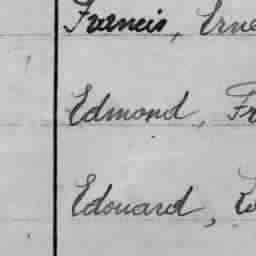 Francis, Erne
Edmond, Fr
Edouard,